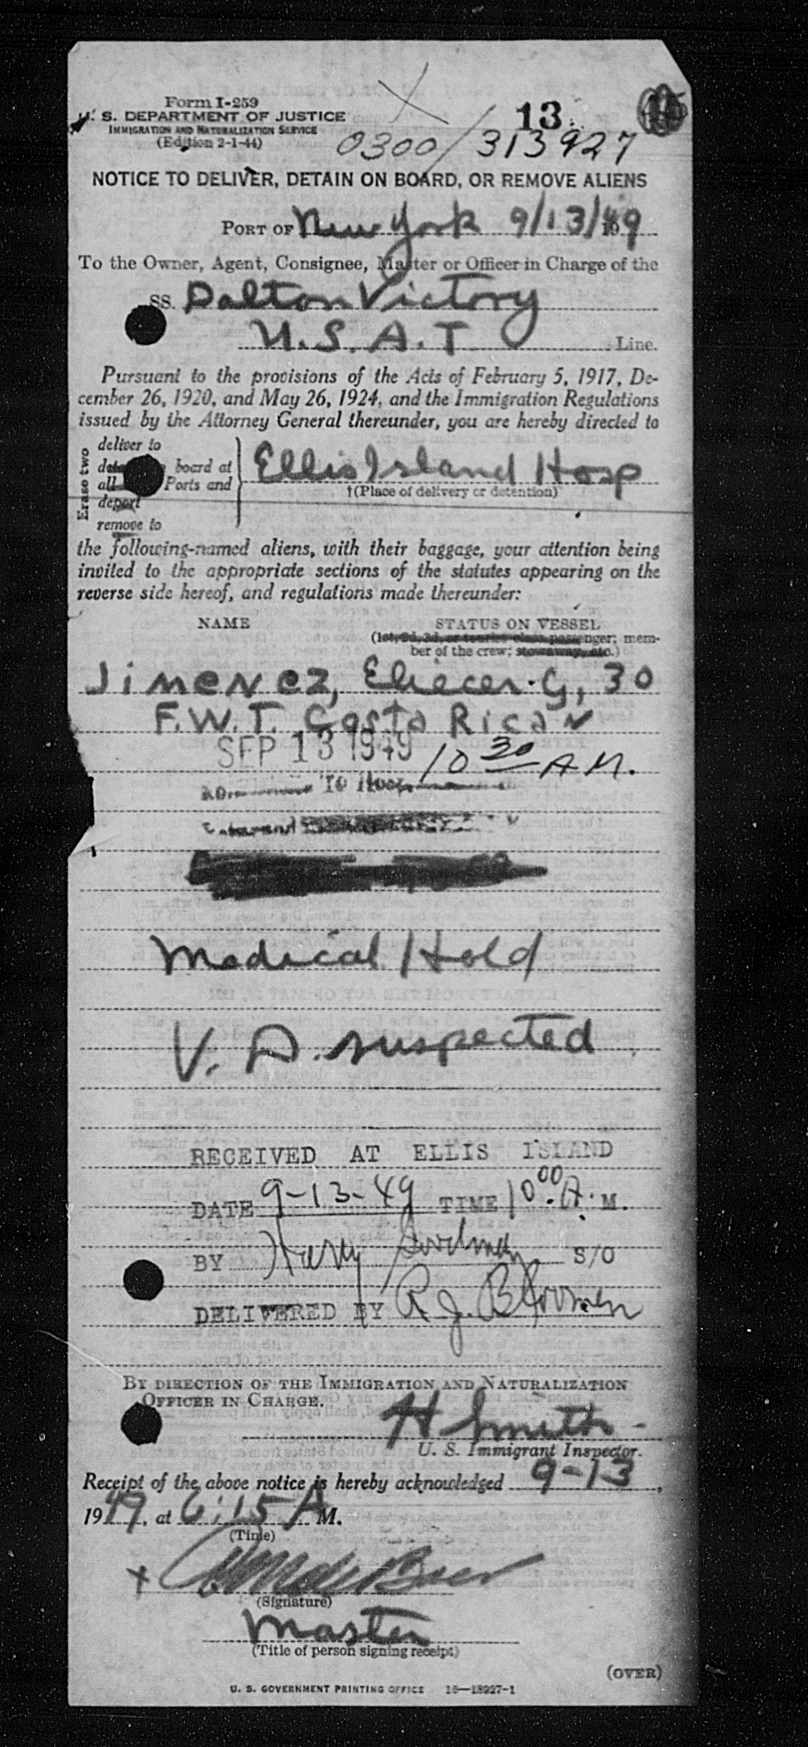 Form I-259
U. S. DEPARTMENT OF JUSTICE
IMMIGRATION AND NATURALIZATION SERVICE
(Edition 2-1-44)
13
0300/313927
NOTICE TO DELIVER, DETAIN ON BOARD, OR REMOVE ALIENS
PORT OF New York 9/13/49
To the Owner, Agent, Consignee, Master or Officer in Charge of the
SS. Dalton Victory
U.S.A.T Line.
Pursuant to the provisions of the Acts of February 5, 1917, De-
cember 26, 1920, and May 26, 1924, and the Immigration Regulations
issued by the Attorney General thereunder, you are hereby directed to
Erase two
deliver to
board at
all Ports and
deport
remove to
Ellis Island Hosp
†(Place of delivery or detention)
the following-named aliens, with their baggage, your attention being
invited to the appropriate sections of the statutes appearing on the
reverse side hereof, and regulations made thereunder:
NAME STATUS ON VESSEL
(1st, 2d, 3d, or tourist class passenger; mem-
ber of the crew; stowaway, etc.)
Jimenez, Eliecer G, 30
F.W.T. Costa Rican
SEP 13 1949 10 30 AM.
To Hosp.
Medical Hold
V. D. suspected
RECEIVED AT ELLIS ISLAND
DATE 9-13-49 TIME 10:00 A. M.
BY Harry Goodman S/O
DELIVERED BY R. J.
BY DIRECTION OF THE IMMIGRATION AND NATURALIZATION
OFFICER IN CHARGE.
H Smith
U. S. Immigrant Inspector.
Receipt of the above notice is hereby acknowledged 9-13,
1949, at 6:15 A M.
(Time)
x
(Signature)
Master
(Title of person signing receipt)
(OVER)
U. S. GOVERNMENT PRINTING OFFICE 16—18927-1